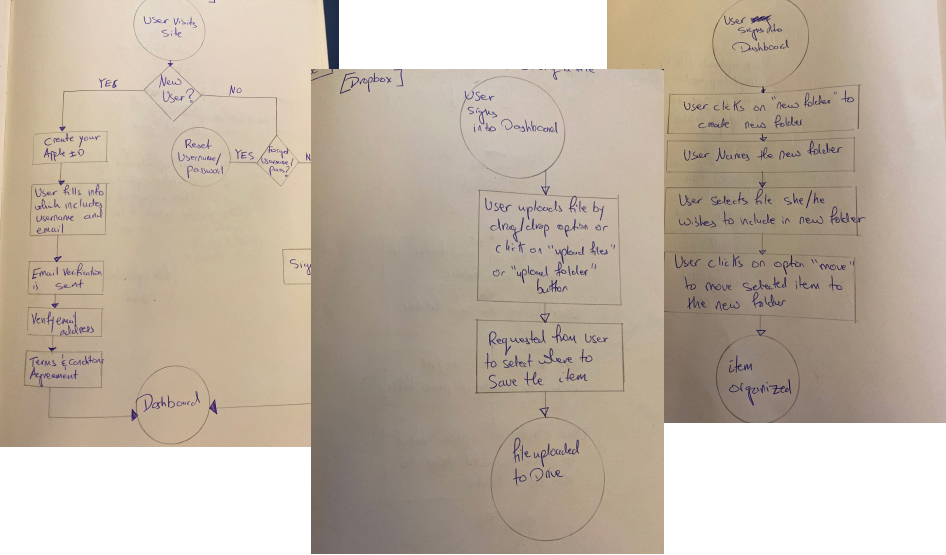 User Visits
Site
YES
New
User?
NO
Create your
Apple ID
Reset
Username/
password
YES
Forgot
Username/
pass?
N
User fills info
which includes
username and
email
Email Verification
is sent
Sig
Verify email
address
Terms & Conditions
Agreement
Dashboard
[Dropbox]
file
User
signs
into Dashboard
User uploads file by
drag/drop option or
click on "upload files"
or "upload folder"
button
Requested from user
to select where to
Save the item
file uploaded
to Drive
User
Signs into
Dashboard
User clicks on "new folder" to
create new folder
User Names the new folder
User Selects file she/he
wishes to include in new folder
User clicks on option "move"
to move selected item to
the new folder
item
organized